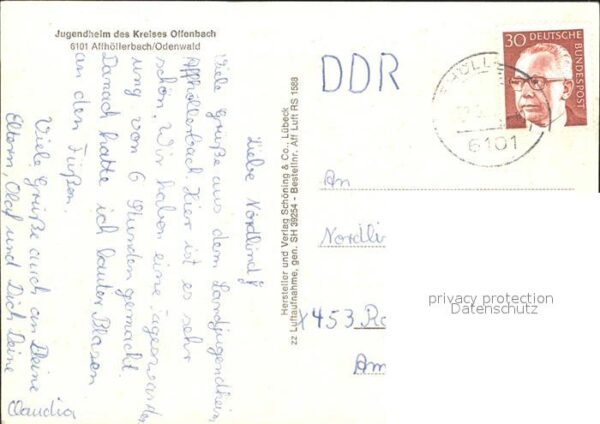 Jugendheim des Kreises Offenbach
6101 Affhöllerbach/Odenwald
Liebe Nordlind!
Viele Grüße aus dem Landjugendheim
Affhöllerbach. Hier ist es sehr
schön. Wir haben eine Tageswander
ung von 6 Stunden gemacht.
Danach hatte ich lauter Blasen
an den Füßen.
Viele Grüße auch an Deine
Eltern, Olaf und Dich Deine
Claudia
Hersteller und Verlag Schöning & Co., Lübeck
zz Luftaufnahme, gen. SH 39254 - Bestellnr. Aff Luft RS 1588
DDR
30 DEUTSCHE
BUNDESPOST
6101
An
Nordli
1453
Am
privacy protection
Datenschutz